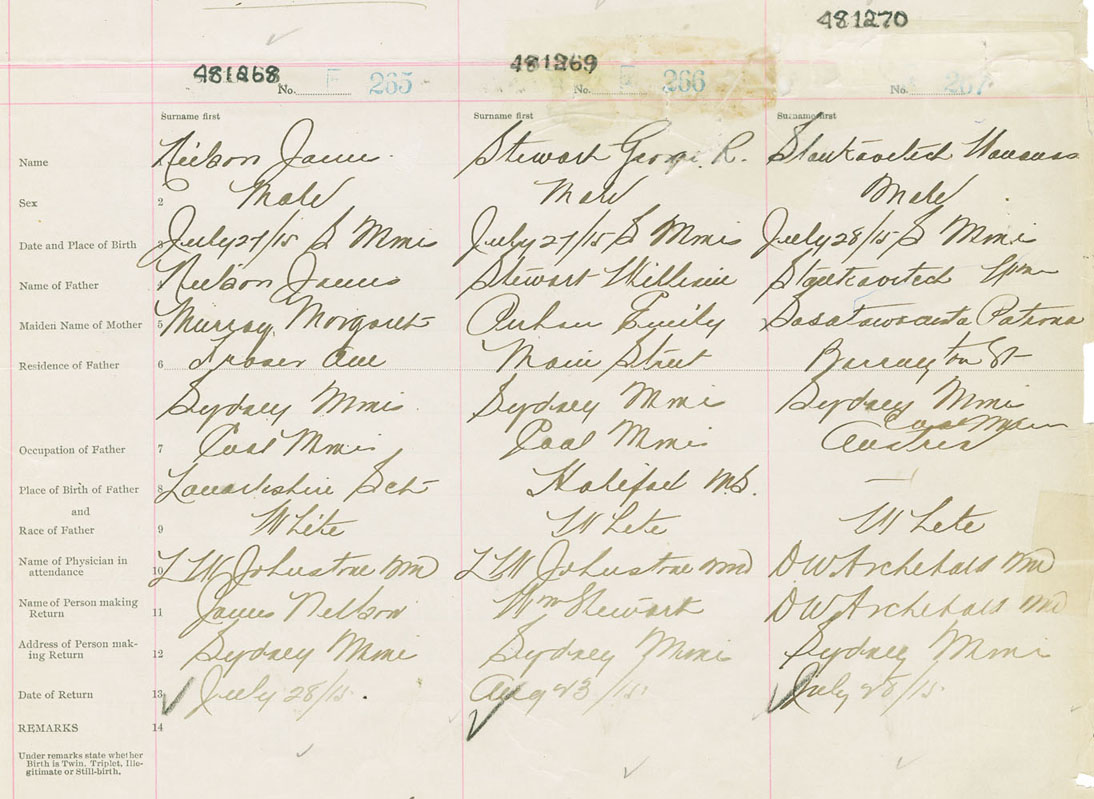 481270
481268 481269
No. F 265 No. F 266 No. 267
Surname first Surname first Surname first
Name Neilson James Stewart George R. Stankavitech
Sex 2 Male Male Male
Date and Place of Birth 3 July 27/15 S Mines July 27/15 S Mines July 28/15 S Mines
Name of Father Neilson James Stewart William Stankavitech Wm
Maiden Name of Mother 5 Murray Margaret Emily Patrona
Residence of Father 6 Fraser Ave Main Street Barrington St
Sydney Mines Sydney Mines Sydney Mines
Coal Miner
Occupation of Father 7 Coal Miner Coal Miner Austria
Place of Birth of Father 8 Lanarkshire Sct Halifax N.S. —
and
Race of Father 9 White White White
Name of Physician in
attendance 10 L W Johnstone MD L W Johnstone MD D W Archibald MD
Name of Person making
Return 11 James Neilson Wm Stewart D W Archibald MD
Address of Person mak-
ing Return 12 Sydney Mines Sydney Mines Sydney Mines
Date of Return 13 July 28/15. Aug 23/15. July 28/15.
REMARKS 14
Under remarks state whether
Birth is Twin, Triplet, Ille-
gitimate or Still-birth.